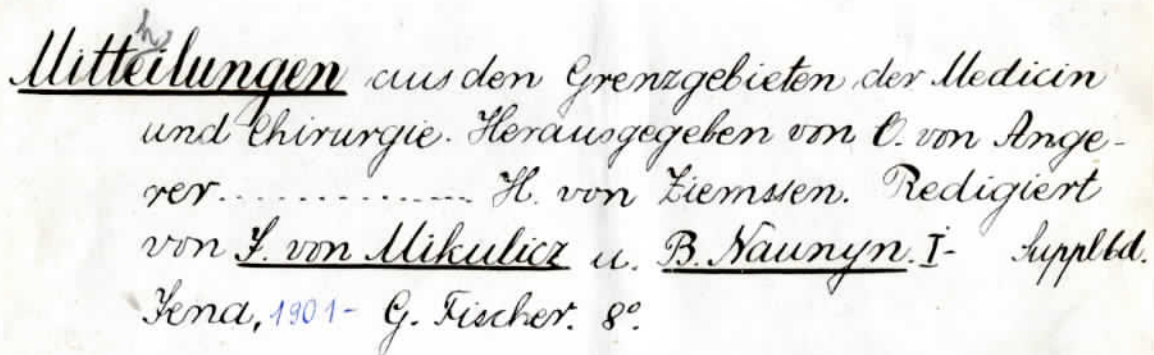 Mittheilungen aus den Grenzgebieten der Medicin
und Chirurgie. Herausgegeben von O. von Ange-
rer.............. H. von Ziemssen. Redigiert
von J. von Mikulicz u. B. Naunyn. I- Supplbd.
Jena, 1901- G. Fischer. 8º.